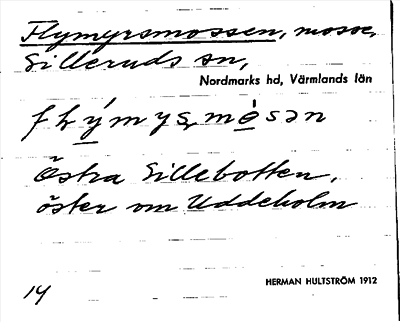 Flymyrsmossen, mosse,
Silleruds sn,
Nordmarks hd, Värmlands län
Östra Sillebotten,
öster om Uddeholm
14 HERMAN HULTSTRÖM 1912